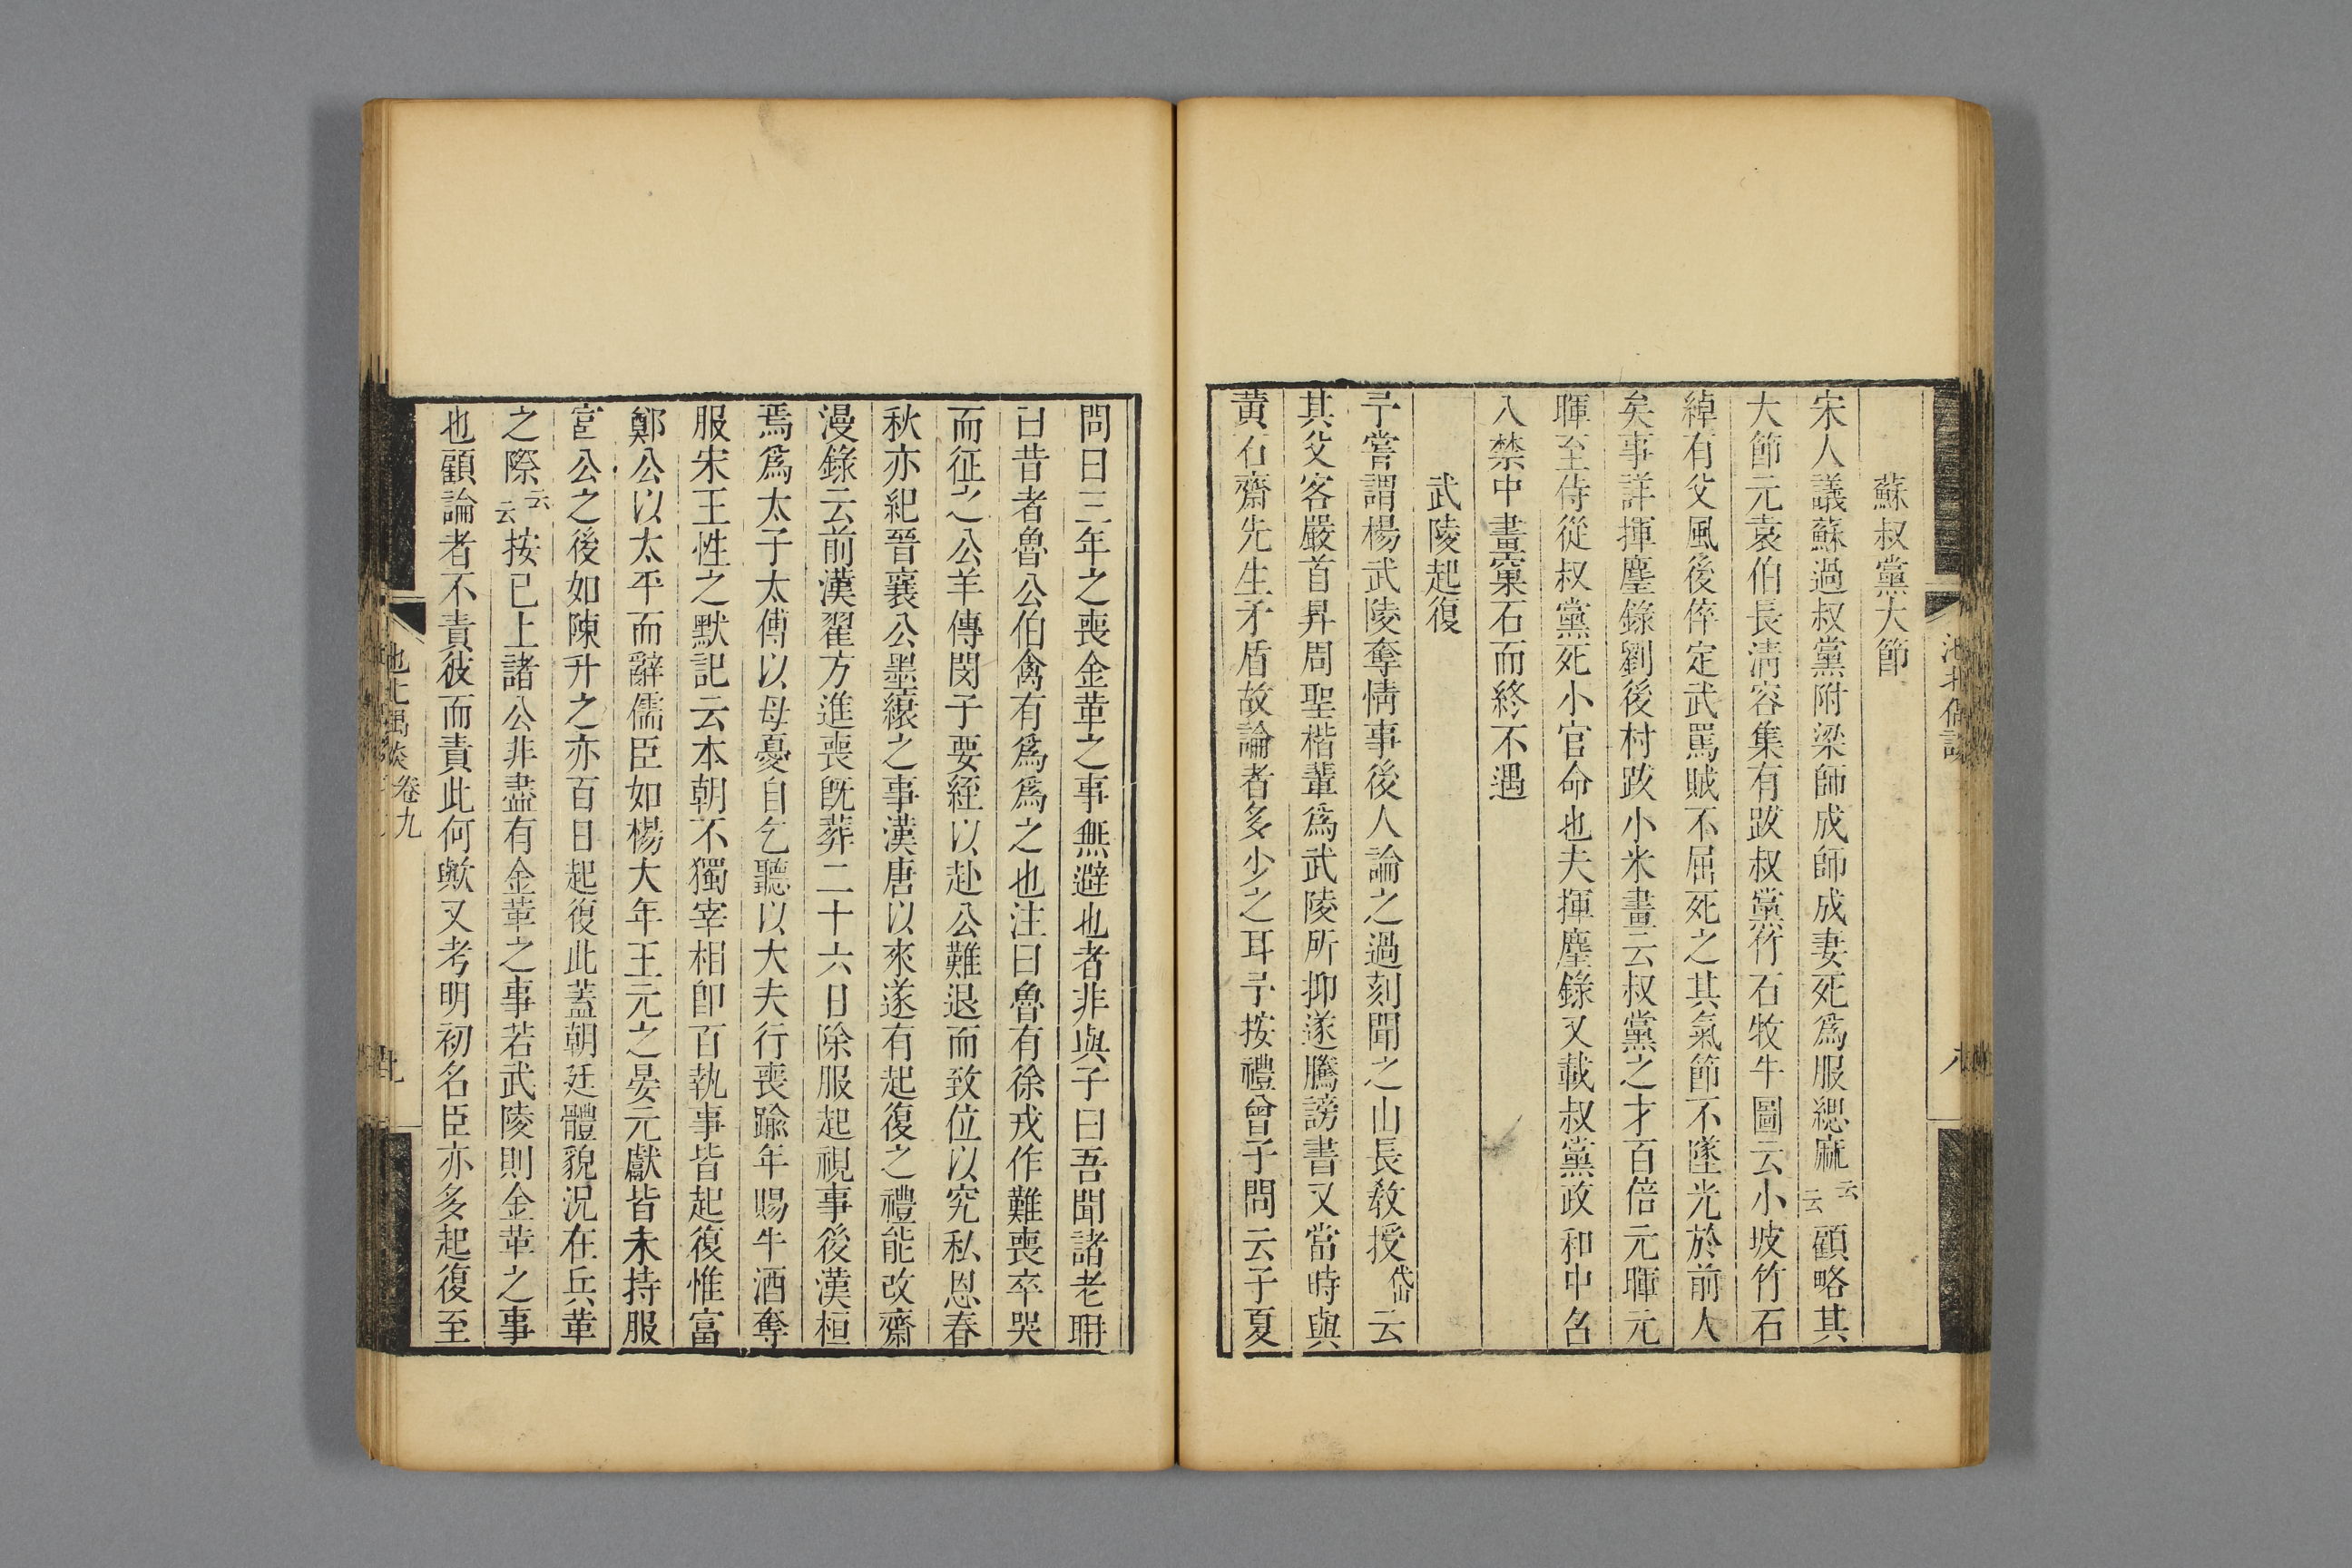 蘇叔黨大節
宋人議蘇過叔黨附梁師成師成妻死爲服緦麻云云顧略其
大節元袁伯長淸容集有跋叔黨竹石牧牛圖云小坡竹石
綽有父風後倅定武罵賊不屈死之其氣節不墜光於前人
矣事詳揮麈錄劉後村跋小米畫云叔黨之才百倍元暉元
暉至侍從叔黨死小官命也夫揮麈錄又載叔黨政和中名
入禁中畫窠石而終不遇
武陵起復
予嘗謂楊武陵奪情事後人論之過刻聞之山長敎授岱云
其父客嚴首昇周聖楷輩爲武陵所抑遂騰謗書又當時與
黃石齋先生矛盾故論者多少之耳予按禮曾子問云子夏
問曰三年之喪金革之事無避也者非與子曰吾聞諸老聃
曰昔者魯公伯禽有爲爲之也注曰魯有徐戎作難喪卒哭
而征之公羊傳閔子要絰以赴公難退而致位以究私恩春
秋亦紀晉襄公墨縗之事漢唐以來遂有起復之禮能改齋
漫錄云前漢翟方進喪旣葬二十六日除服起視事後漢桓
焉爲太子太傅以母憂自乞聽以大夫行喪踰年賜牛酒奪
服宋王性之默記云本朝不獨宰相卽百執事皆起復惟富
鄭公以太平而辭儒臣如楊大年王元之晏元獻皆未持服
富公之後如陳升之亦百日起復此蓋朝廷體貌況在兵革
之際云云按已上諸公非盡有金革之事若武陵則金革之事
也顧論者不責彼而責此何歟又考明初名臣亦多起復至
卷九